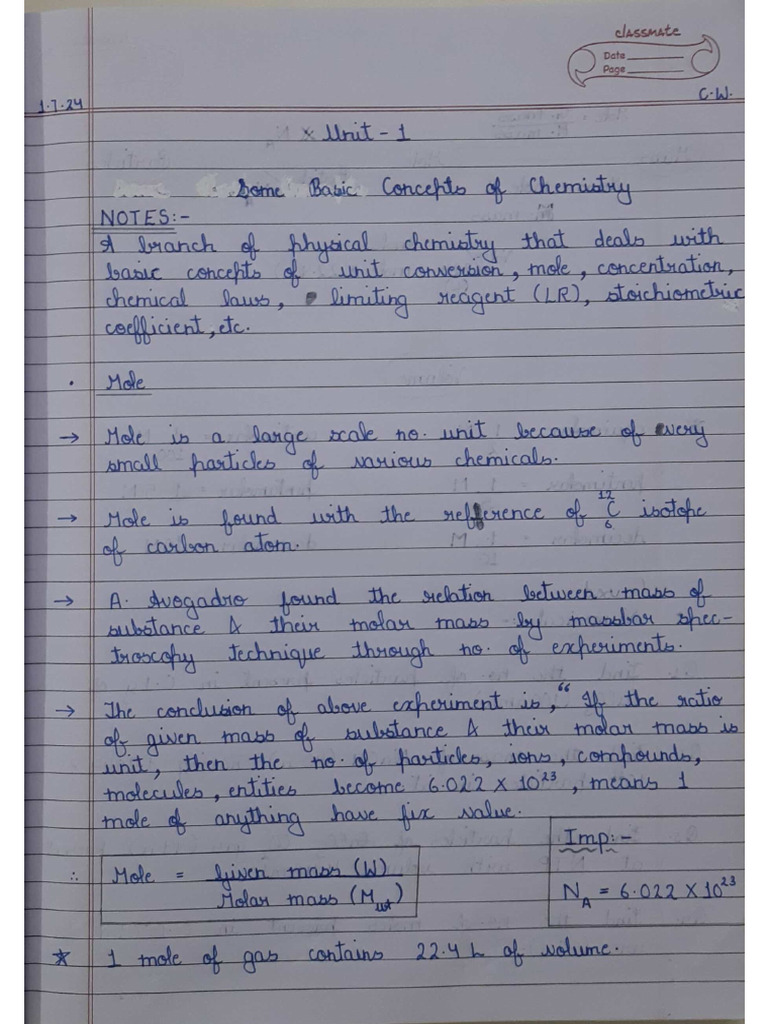 classmate
Date
Page
1.7.24
C.W.
× Unit - 1
Some Basic Concepts of Chemistry
NOTES:-
A branch of physical chemistry that deals with
basic concepts of unit conversion, mole, concentration,
chemical laws, limiting reagent (LR), stoichiometric
coefficient, etc.
• Mole
→ Mole is a large scale no. unit because of very
small particles of various chemicals.
→ Mole is found with the reference of ¹²₆C isotope
of carbon atom.
→ A. Avogadro found the relation between mass of
substance & their molar mass by massbar spec-
troscopy technique through no. of experiments.
→ The conclusion of above experiment is, “If the ratio
of given mass of substance & their molar mass is
unit, then the no. of particles, ions, compounds,
molecules, entities become 6.022 × 10²³, means 1
mole of anything have fix value.
∴ Mole = Given mass (W)
Molar mass (Mwt)
Imp:-
N_A = 6.022 × 10²³
* 1 mole of gas contains 22.4 L of volume.